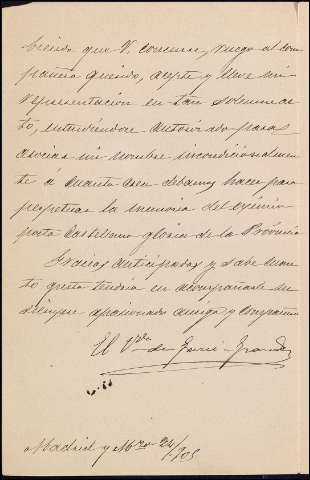 biendo que V. concurre, ruego al com
pañero querido, acepte y lleve mi
representacion en tan solemne ac
to, entendiendose autorizado para
asociar mi nombre incondicionalmen
te á cuanto crea debamos hacer para
perpetuar la memoria del eximio
poeta Castellano gloria de la Provincia
Gracias anticipadas y sabe cuan
to gusto tendria en acompañarle su
siempre apasionado amigo y compañero
El Vde de
Madrid y 24/905